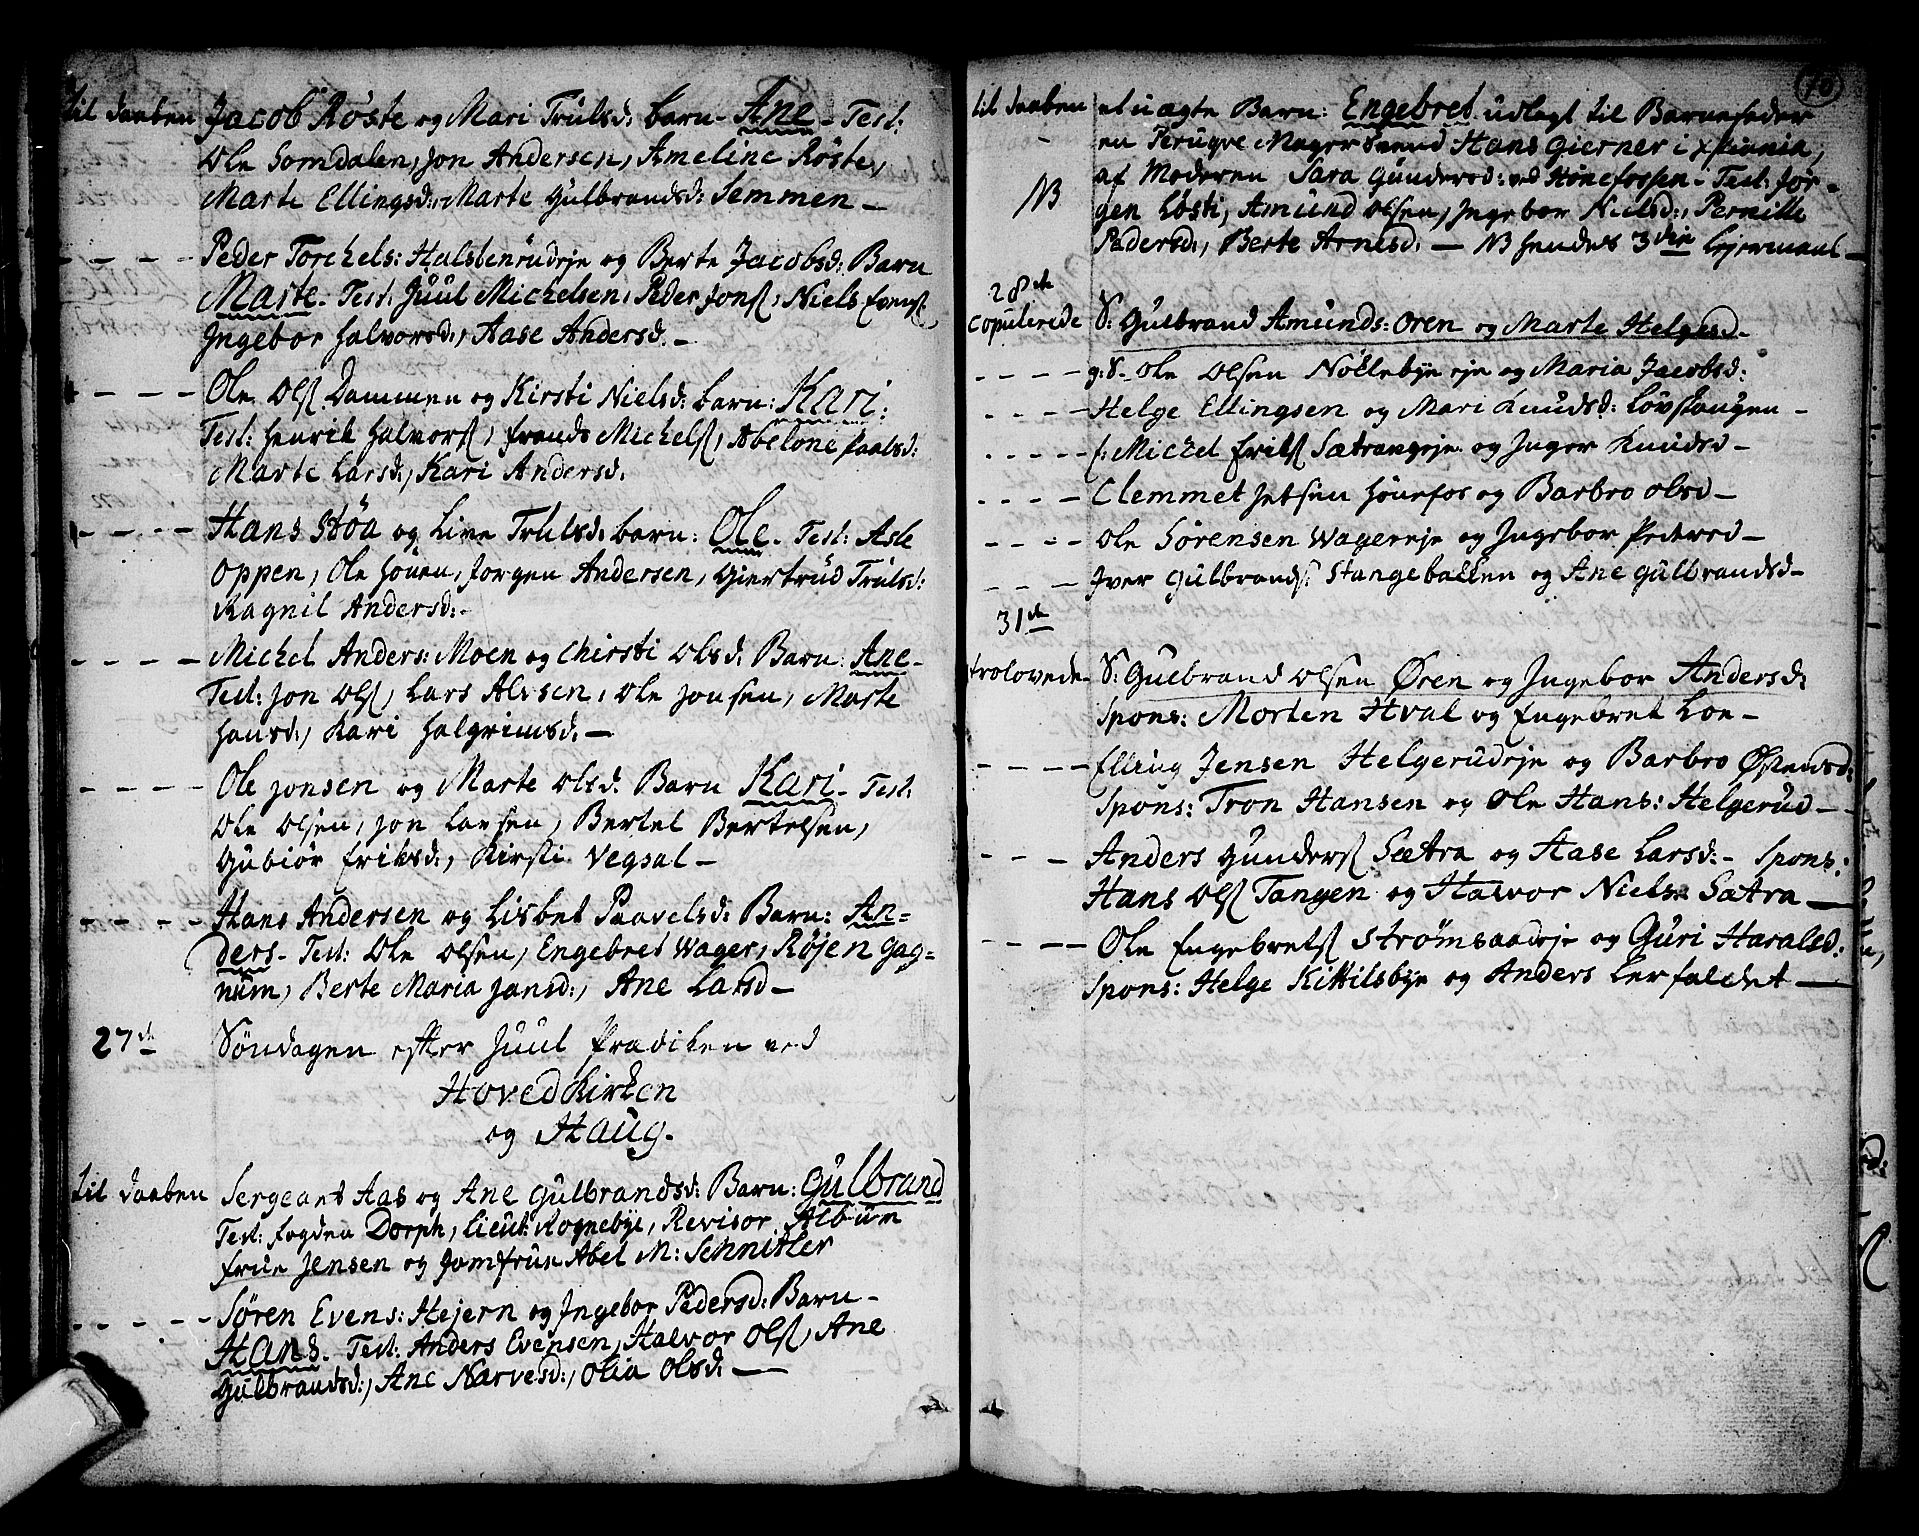 til daaben Jacob Röste og Mari Trulsd: barn - Ane - Test:
Ole Somdalen, Jon Andersen, Ameline Röste,
Marte Ellingsd:, Marte Gulbrandsd: Semmen -
- - - - Peder Torchels: Halstenrudeje og Berte Jacobsd: Barn
Marte. Test: Juul Michelsen, Peder Jonsß, Niels Evenß,
Ingebor Halvorsd:, Aase Andersd. -
- - - - Ole Olß Dammen og Kirsti Nielsd: barn: Kari:
Test: Henrik Halvorß, Frands Michelß, Abelone Paalsd:
Marte Larsd:, Kari Andersd.
- - - - Hans Støa og Live Trulsd: barn: Ole. Test: Asle
Oppen, Ole Houen, Jørgen Andersen, Giertrud Trulsd:
Ragnil Andersd: -
- - - - Michel Anders: Moen og Chirsti Olsd: Barn: Ane -
Test: Jon Olß, Lars Alvsen, Ole Jonsen, Marte
Hansd:, Kari Halgrimsd: -
- - - - Ole Jonsen og Marte Olsd: Barn Kari - Test:
Ole Olsen, Jon Larsen, Bertel Bertelsen,
Gubiør Eriksd:, Kirsti Vegsal -
- - - - Hans Andersen og Lisbet Paavelsd: Barn: An-
ders - Test: Ole Olsen, Engebret Wager, Røjen Gag-
num, Berte Maria Jansd:, Ane Larsd -
27de Søndagen efter Juul Prædiken ved
Hoved Kirken
og Haug.
til daaben Sergeant Aas og Ane Gulbrandsd: Barn: Gulbrand
Test: Fogden Dorph, Lieut: Rognebye, Revisor Album
Frue Jensen og Jomfrue Abel M: Schnitler
- - - - Søren Evens: Hejern og Ingebor Pedersd: Barn -
Hans. Test: Anders Evensen, Halvor Olß, Ane
Gulbrandsd:, Ane Narvesd:, Olia Olsd: -
70
til daaben et uægte Barn: Engebret udlagt til Barnefader
en Peruqve Mager Svend Hans Gierner i Xstiania,
af Moderen Sara Gundersd: ved Hønefossen - Test: Jør-
NB gen Løsti, Amund Olsen, Ingebor Nielsd:, Pernille
Pedersd:, Berte Arnesd: - NB hendes 3die Lejermaal -
28de
Copulerede S: Gulbrand Amunds: Oren og Marte Helgesd -
- - - - g:S. Ole Olsen Nøllebye eje og Maria Jacobsd:
- - - - Helge Ellingsen og Mari Knudsd: Løvstangen -
- - - - Michel Erikß Sætrangeje og Inger Knudsd -
- - - - Clemmet Jetsen Hønefos og Barbro Olsd -
- - - - Ole Sørensen Wagereje og Ingebor Pedersd -
- - - Iver Gulbrands: Stangebakken og Ane Gulbrandsd -
31de
trolovede - S: Gulbrand Olsen Øren og Ingebor Andersd:
Spons: Morten Hval og Engebret Loe -
- - - - Elling Jensen Helgerudeje og Barbro Østensd:
Spons: Tron Hansen og Ole Hans: Helgerud -
- - - Anders Gunderß Sætra og Aase Larsd: - Spons:
Hans Olß Tangen og Halvor Niels: Sætra -
- - - - Ole Engebretß Strømsaadeje og Guri Haralsd:
Spons: Helge Kittilsbye og Anders Lerfaldet -